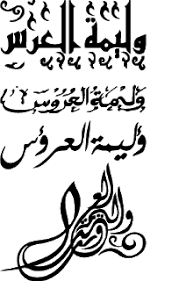 وليمة العرس
وَلِيمَةُ العُرُوسْ
وليمة العروس
وليمة العروس